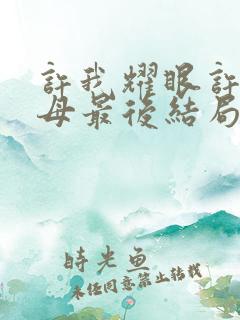 許我耀眼許
母最後結局
時光魚
未經同意禁止轉載